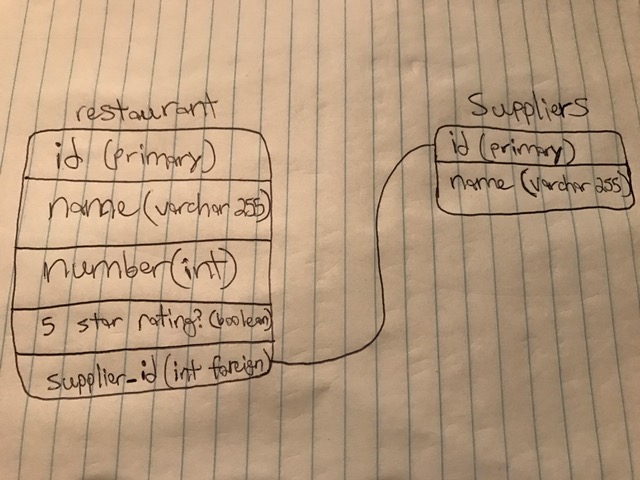 restaurant
id (primary)
name (varchar 255)
number (int)
5 star rating? (boolean)
supplier_id (int foreign)
Suppliers
id (primary)
name (varchar 255)